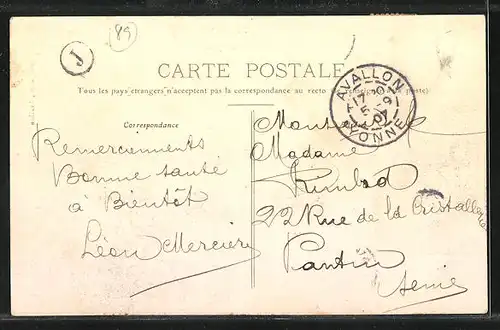 89
J
CARTE POSTALE
Tous les pays étrangers n'acceptent pas la correspondance au recto (Se renseigner à la poste)
AVALLON
17 10
5 - 9
07
YONNE
Correspondance
Remerciements
Bonne santé
à Bientôt
Léon Mercier
Monsieur &
Madame
22 Rue de la Cristallerie
Pantin
Seine